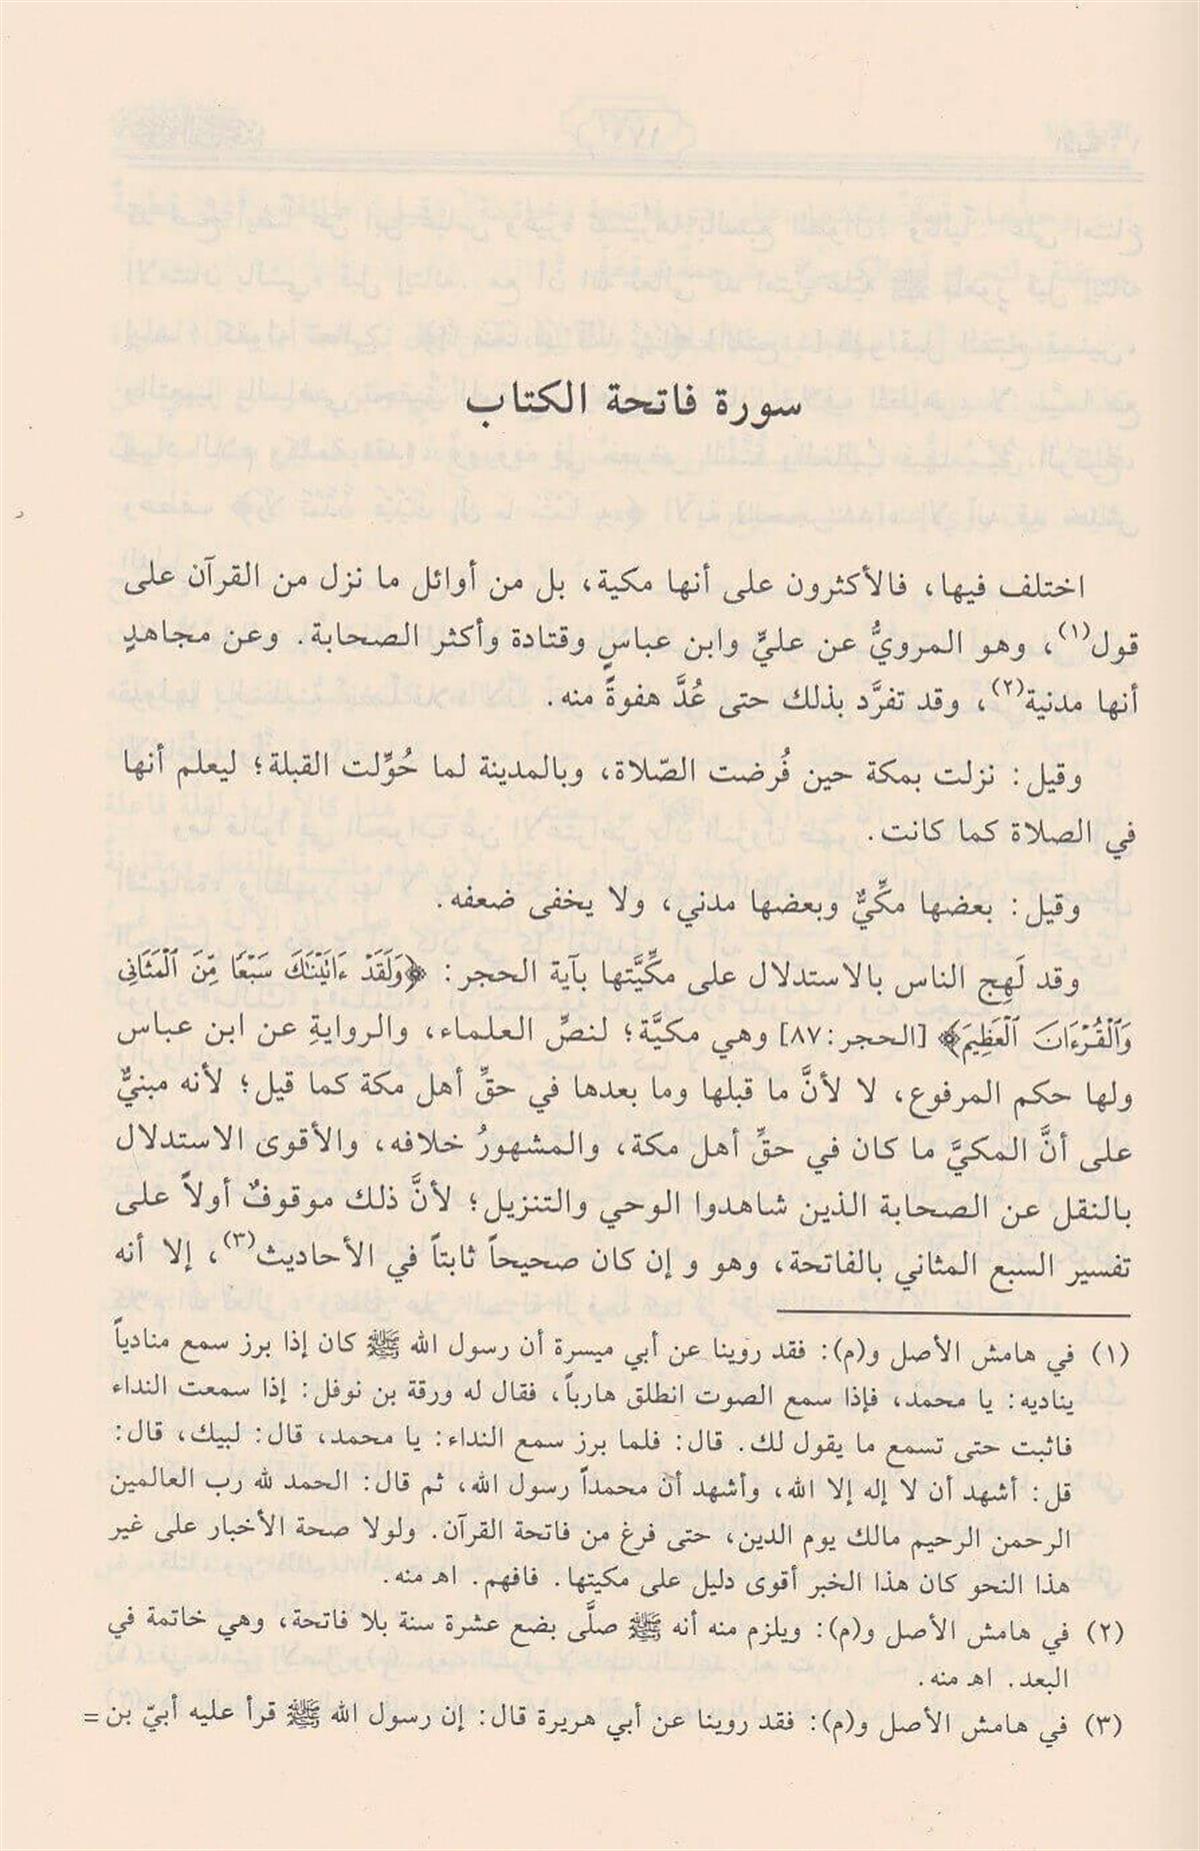 سورة فاتحة الكتاب
اختلف فيها، فالأكثرون على أنها مكية، بل من أوائل ما نزل من القرآن على
قول(١)، وهو المرويُّ عن عليٍّ وابن عباسٍ وقتادة وأكثر الصحابة. وعن مجاهدٍ
أنها مدنية(٢)، وقد تفرَّد بذلك حتى عُدَّ هفوةً منه.
وقيل: نزلت بمكة حين فُرضت الصّلاة، وبالمدينة لما حُوِّلت القبلة؛ ليعلم أنها
في الصلاة كما كانت.
وقيل: بعضها مكِّيٌّ وبعضها مدني، ولا يخفى ضعفه.
وقد لَهِج الناس بالاستدلال على مكِّيَّتها بآية الحجر: ﴿وَلَقَدْ ءَاتَيْنَٰكَ سَبْعًا مِّنَ ٱلْمَثَانِى
وَٱلْقُرْءَانَ ٱلْعَظِيمَ﴾ [الحجر:٨٧] وهي مكيَّة؛ لنصِّ العلماء، والروايةِ عن ابن عباس
ولها حكم المرفوع، لا لأنَّ ما قبلها وما بعدها في حقِّ أهل مكة كما قيل؛ لأنه مبنيٌّ
على أنَّ المكيَّ ما كان في حقِّ أهل مكة، والمشهورُ خلافه، والأقوى الاستدلال
بالنقل عن الصحابة الذين شاهدوا الوحي والتنزيل؛ لأنَّ ذلك موقوفٌ أولاً على
تفسير السبع المثاني بالفاتحة، وهو و إن كان صحيحاً ثابتاً في الأحاديث(٣)، إلا أنه
(١) في هامش الأصل و(م): فقد روينا عن أبي ميسرة أن رسول الله ﷺ كان إذا برز سمع منادياً
يناديه: يا محمد، فإذا سمع الصوت انطلق هارباً، فقال له ورقة بن نوفل: إذا سمعت النداء
فاثبت حتى تسمع ما يقول لك. قال: فلما برز سمع النداء: يا محمد، قال: لبيك، قال:
قل: أشهد أن لا إله إلا الله، وأشهد أن محمداً رسول الله، ثم قال: الحمد لله رب العالمين
الرحمن الرحيم مالك يوم الدين، حتى فرغ من فاتحة القرآن. ولولا صحة الأخبار على غير
هذا النحو كان هذا الخبر أقوى دليل على مكيتها. فافهم. اهـ منه.
(٢) في هامش الأصل و(م): ويلزم منه أنه ﷺ صلَّى بضع عشرة سنة بلا فاتحة، وهي خاتمة في
البعد. اهـ منه.
(٣) في هامش الأصل و(م): فقد روينا عن أبي هريرة قال: إن رسول الله ﷺ قرأ عليه أبيّ بن =